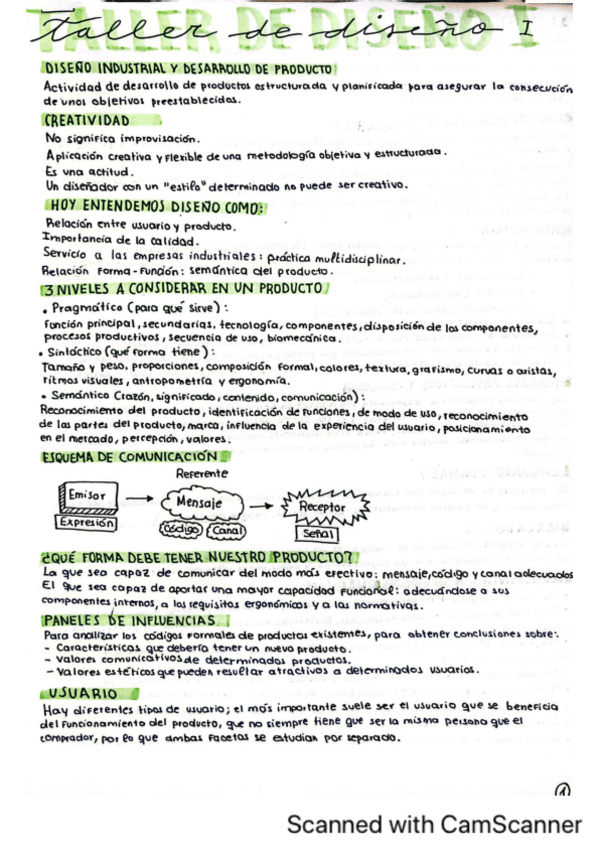 TALLER DE DISEÑO I
taller de diseño I
DISEÑO INDUSTRIAL Y DESARROLLO DE PRODUCTO
Actividad de desarrollo de productos estructurada y planificada para asegurar la consecución
de unos objetivos preestablecidos.
CREATIVIDAD
No significa improvisación.
Aplicación creativa y flexible de una metodología objetiva y estructurada.
Es una actitud.
Un diseñador con un "estilo" determinado no puede ser creativo.
HOY ENTENDEMOS DISEÑO COMO:
Relación entre usuario y producto.
Importancia de la calidad.
Servicio a las empresas industriales: práctica multidisciplinar.
Relación Forma-Función: semántica del producto.
3 NIVELES A CONSIDERAR EN UN PRODUCTO
• Pragmático (para qué sirve):
Función principal, secundarias, tecnología, componentes, disposición de los componentes,
procesos productivos, secuencia de uso, biomecánica.
• Sintáctico (qué forma tiene):
Tamaño y peso, proporciones, composición formal, colores, textura, grafismo, curvas o aristas,
ritmos visuales, antropometría y ergonomía.
• Semántico (razón, significado, contenido, comunicación):
Reconocimiento del producto, identificación de funciones, de modo de uso, reconocimiento
de las partes del producto, marca, influencia de la experiencia del usuario, posicionamiento
en el mercado, percepción, valores.
ESQUEMA DE COMUNICACIÓN
Referente
Emisor
Mensaje
Receptor
Expresión
Código
Canal
Señal
¿QUÉ FORMA DEBE TENER NUESTRO PRODUCTO?
La que sea capaz de comunicar del modo más efectivo: mensaje, código y canal adecuados
El que sea capaz de aportar una mayor capacidad funcional: adecuándose a sus
componentes internos, a los requisitos ergonómicos y a las normativas.
PANELES DE INFLUENCIAS
Para analizar los códigos formales de productos existentes, para obtener conclusiones sobre:
- Características que debería tener un nuevo producto.
- Valores comunicativos de determinados productos.
- Valores estéticos que pueden resultar atractivos a determinados usuarios.
USUARIO
Hay diferentes tipos de usuario; el más importante suele ser el usuario que se beneficia
del funcionamiento del producto, que no siempre tiene que ser la misma persona que el
comprador, por lo que ambas facetas se estudian por separado.
1
Scanned with CamScanner